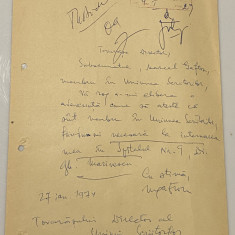 Tovarășe Director,
Subsemnatul, Marcel Gafton,
membru în Uniunea Scriitorilor,
Vă rog a-mi elibera o
adeverință care să ateste că
sînt membru în Uniunea Scriitorilor,
necesară la internarea
mea în Spitalul Nr. 9, Dr.
Gh. Marinescu
Cu stimă,
27 ian 1974
Tovarășului Director al
Uniunii Scriitorilor